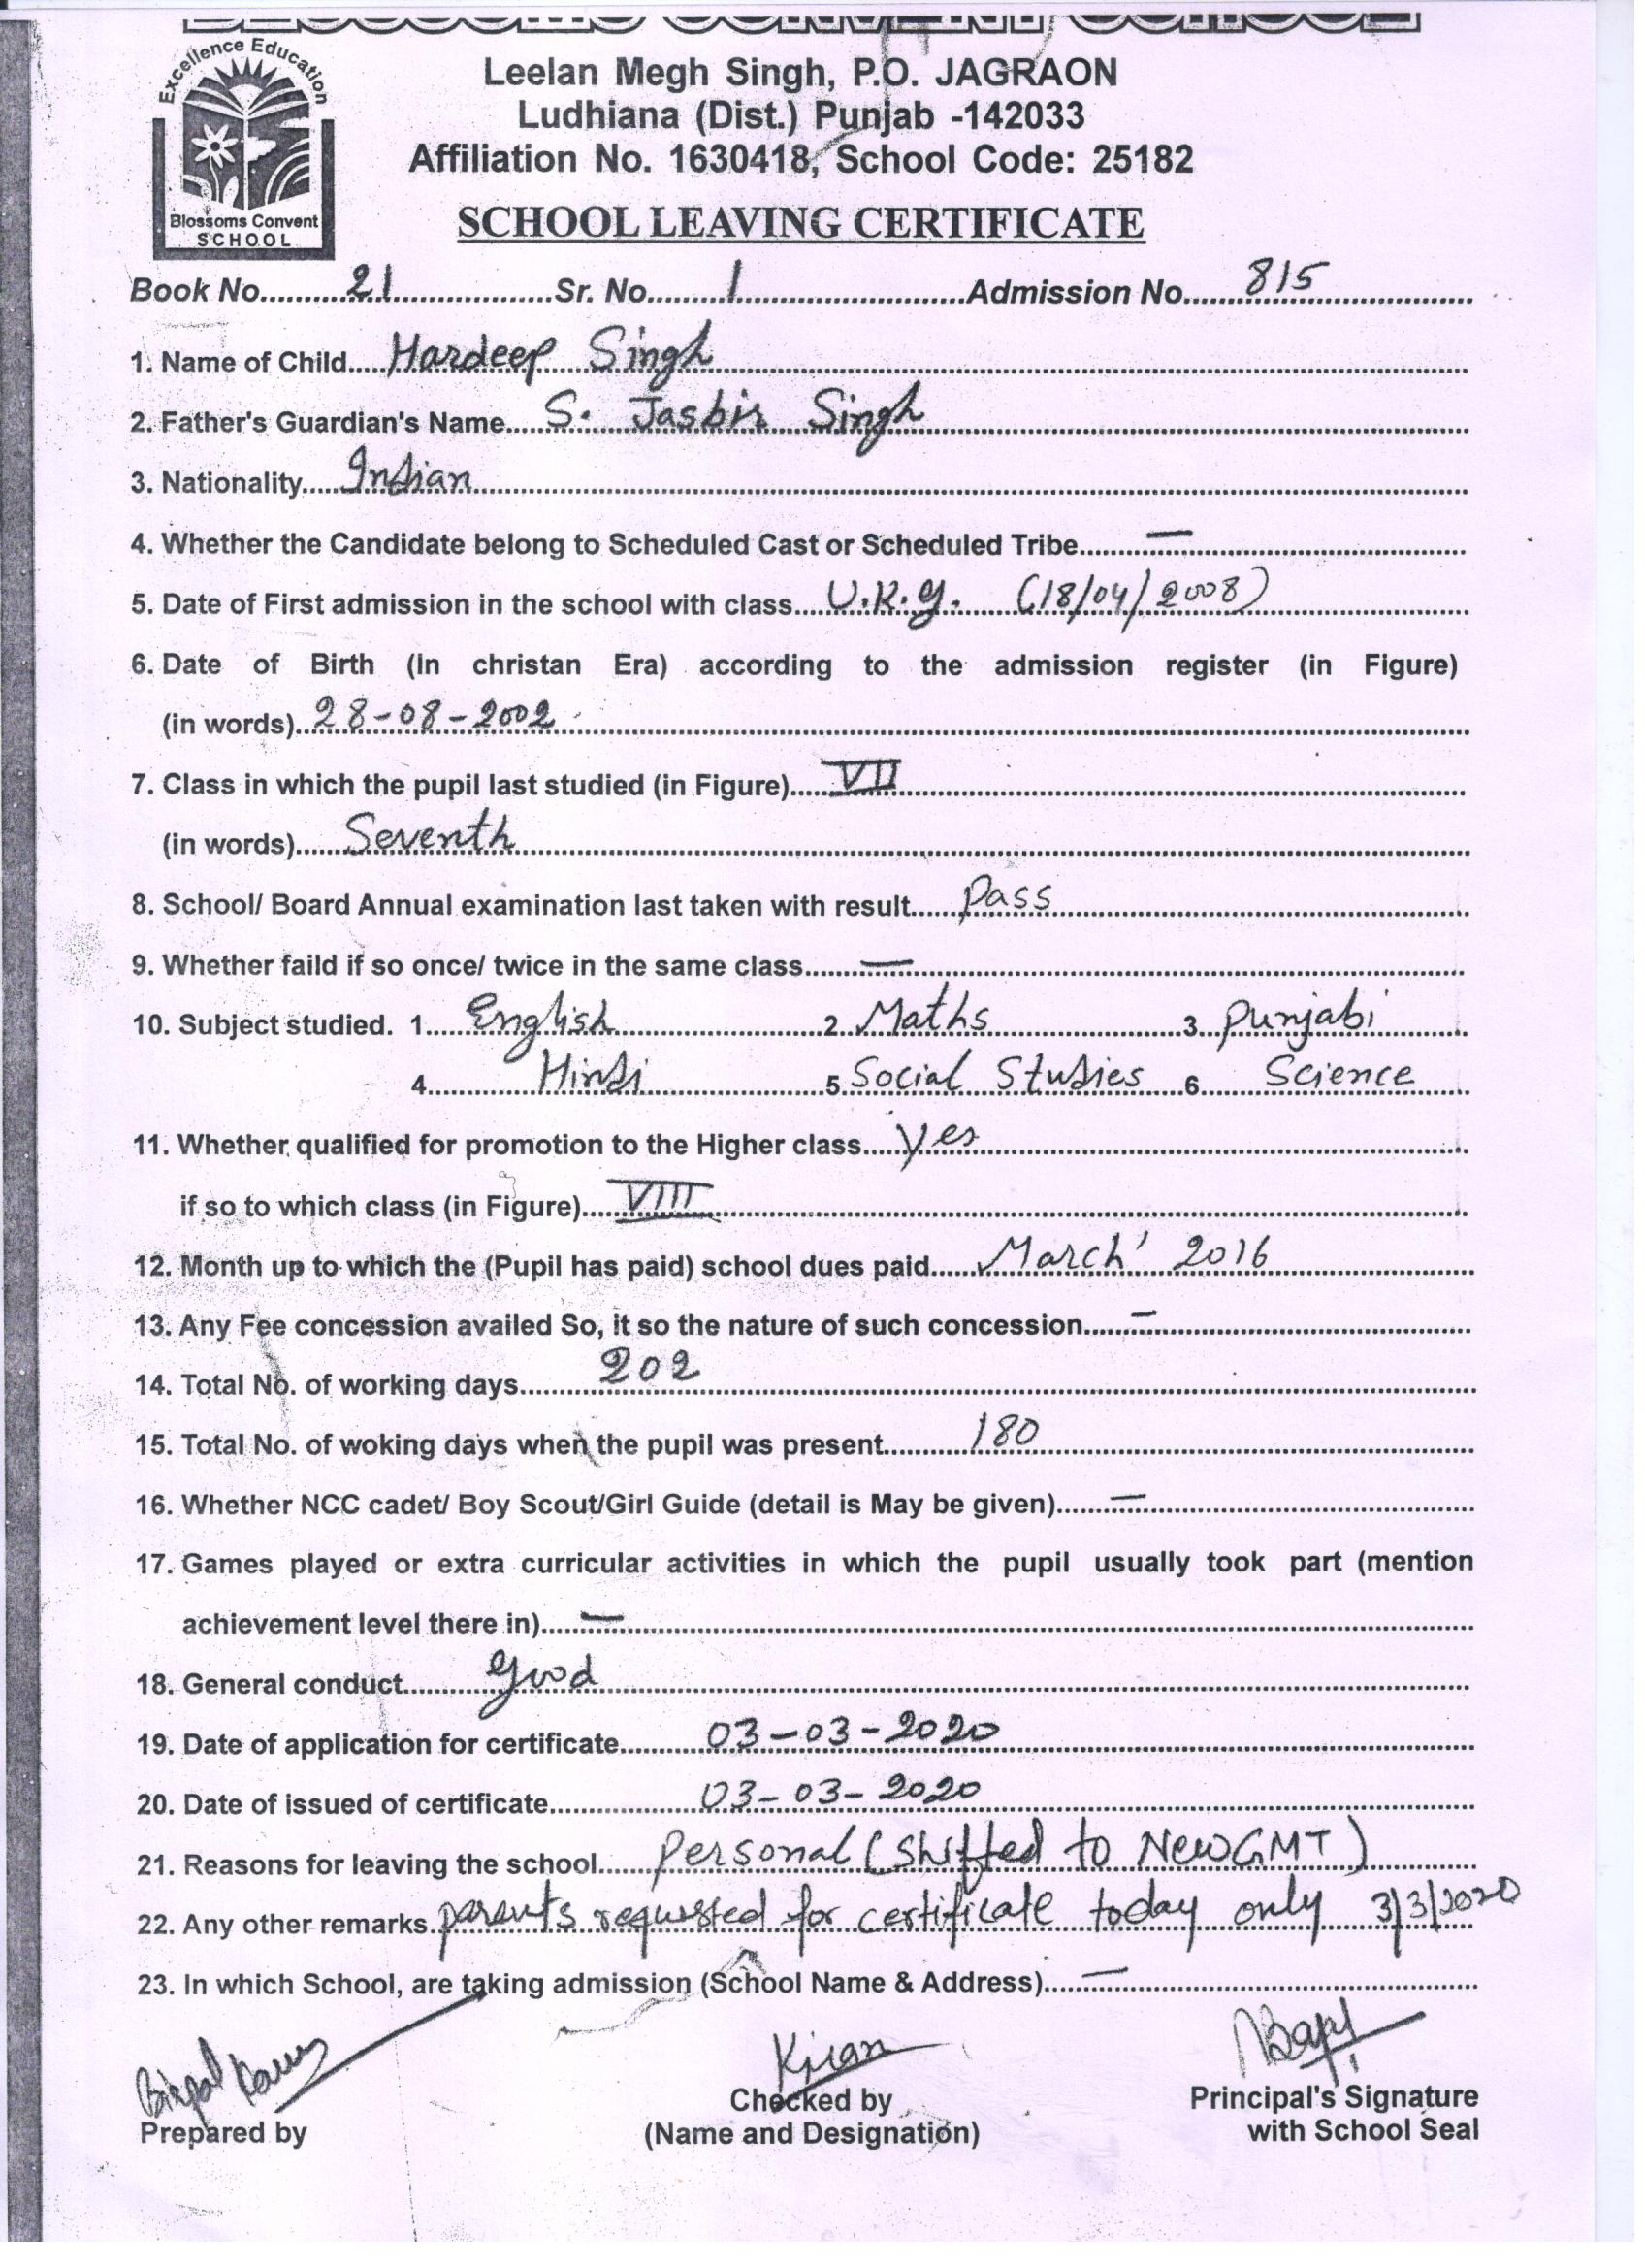 BLOSSOMS CONVENT SCHOOL
Excellence Education
Blossoms Convent
SCHOOL
Leelan Megh Singh, P.O. JAGRAON
Ludhiana (Dist.) Punjab -142033
Affiliation No. 1630418, School Code: 25182
SCHOOL LEAVING CERTIFICATE
Book No. 21 Sr. No. 1 Admission No. 815
1. Name of Child Hardeep Singh
2. Father's Guardian's Name S. Jasbir Singh
3. Nationality Indian
4. Whether the Candidate belong to Scheduled Cast or Scheduled Tribe —
5. Date of First admission in the school with class U.K.G. (18/04/2008)
6. Date of Birth (In christan Era) according to the admission register (in Figure)
(in words) 28-08-2002
7. Class in which the pupil last studied (in Figure) VII
(in words) Seventh
8. School/ Board Annual examination last taken with result Pass
9. Whether faild if so once/ twice in the same class —
10. Subject studied. 1. English 2. Maths 3. Punjabi
4. Hindi 5. Social Studies 6. Science
11. Whether qualified for promotion to the Higher class yes
if so to which class (in Figure) VIII
12. Month up to which the (Pupil has paid) school dues paid March' 2016
13. Any Fee concession availed So, it so the nature of such concession —
14. Total No. of working days 202
15. Total No. of woking days when the pupil was present 180
16. Whether NCC cadet/ Boy Scout/Girl Guide (detail is May be given) —
17. Games played or extra curricular activities in which the pupil usually took part (mention
achievement level there in) —
18. General conduct Good
19. Date of application for certificate 03-03-2020
20. Date of issued of certificate 03-03-2020
21. Reasons for leaving the school Personal (Shifted to New GMT)
22. Any other remarks parents requested for certificate today only 3/3/2020
23. In which School, are taking admission (School Name & Address) —
Kiran
Prepared by
Checked by
(Name and Designation)
Principal's Signature
with School Seal